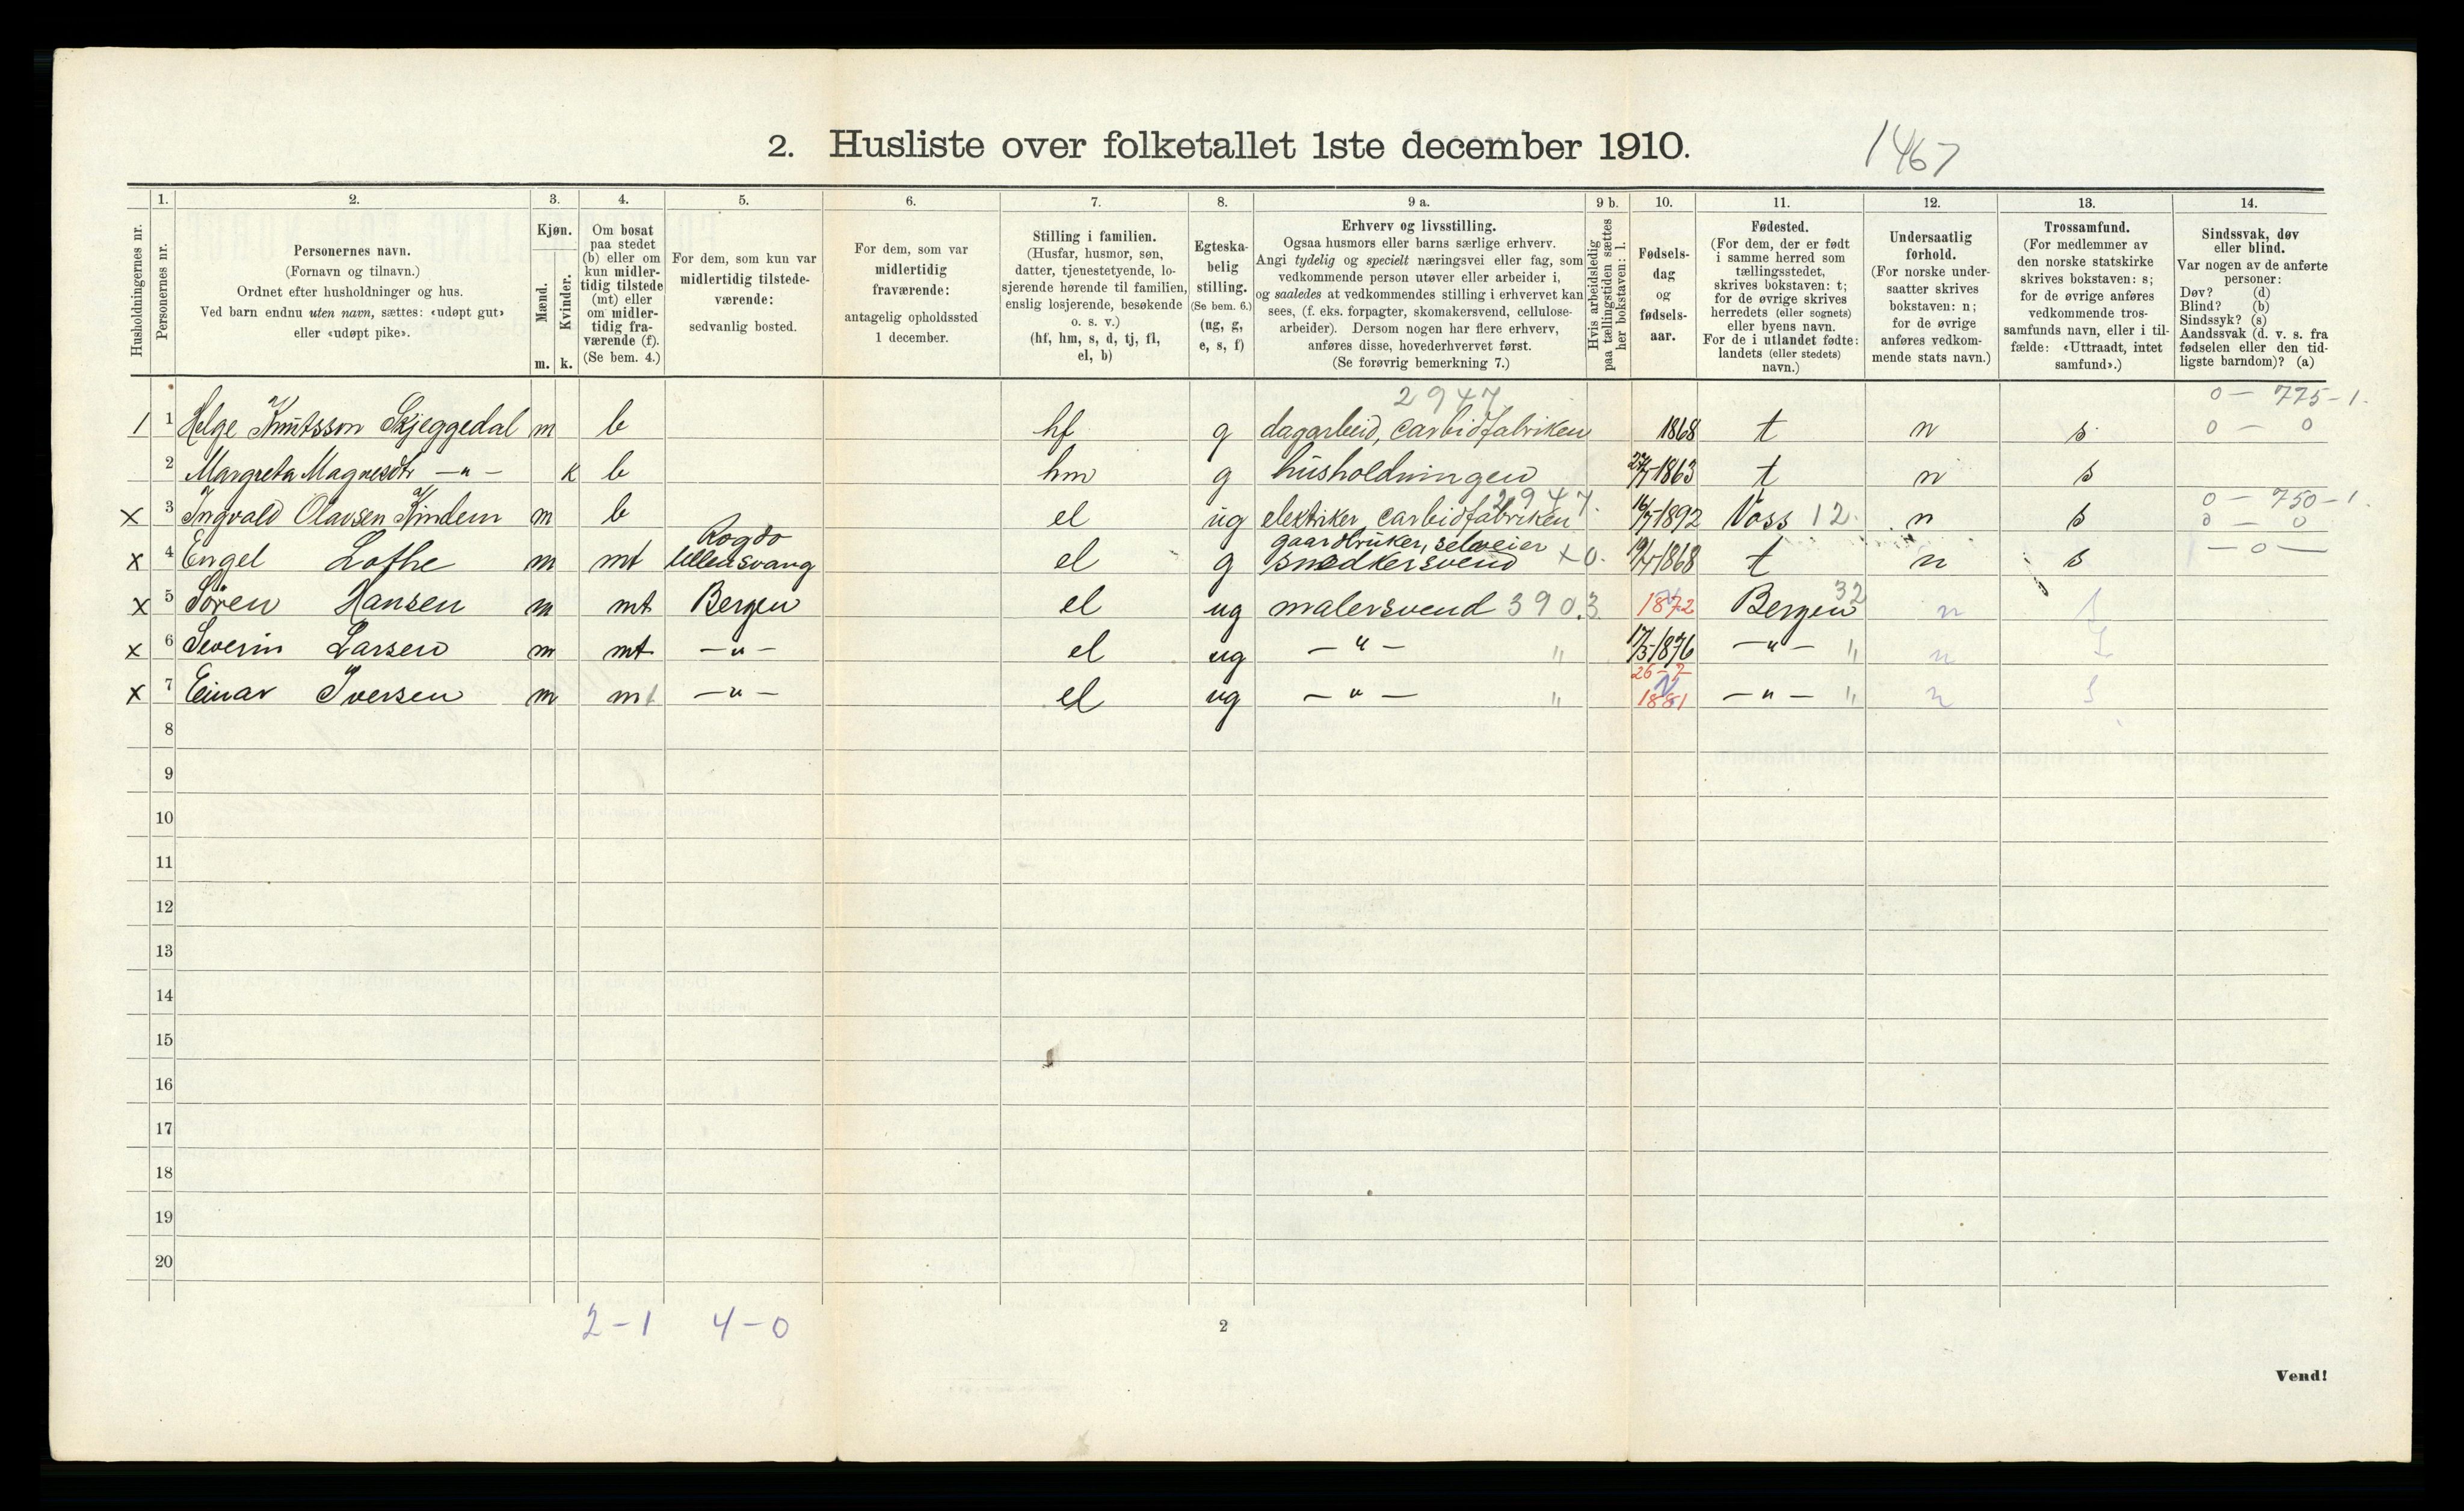 2. Husliste over folketallet 1ste december 1910.
1467
1. 2. 3. 4. 5. 6. 7. 8. 9 a. 9 b. 10. 11. 12. 13. 14.
Husholdningernes nr.
Personernes nr.
Personernes navn.
(Fornavn og tilnavn.)
Ordnet efter husholdninger og hus.
Ved barn endnu uten navn, sættes: «udøpt gut»
eller «udøpt pike».
Kjøn.
Mænd.
m.
Kvinder.
k.
Om bosat
paa stedet
(b) eller om
kun midler-
tidig tilstede
(mt) eller
om midler-
tidig fra-
værende (f).
(Se bem. 4.)
For dem, som kun var
midlertidig tilstede-
værende:
sedvanlig bosted.
For dem, som var
midlertidig
fraværende:
antagelig opholdssted
1 december.
Stilling i familien.
(Husfar, husmor, søn,
datter, tjenestetyende, lo-
sjerende hørende til familien,
enslig losjerende, besøkende
o. s. v.)
(hf, hm, s, d, tj, fl,
el, b)
Egteska-
belig
stilling.
(Se bem. 6.)
(ug, g,
e, s, f)
Erhverv og livsstilling.
Ogsaa husmors eller barns særlige erhverv.
Angi tydelig og specielt næringsvei eller fag, som
vedkommende person utøver eller arbeider i,
og saaledes at vedkommendes stilling i erhvervet kan
sees, (f. eks. forpagter, skomakersvend, cellulose-
arbeider). Dersom nogen har flere erhverv,
anføres disse, hovederhvervet først.
(Se forøvrig bemerkning 7.)
Hvis arbeidsledig
paa tællingstiden sættes
her bokstaven: l.
Fødsels-
dag
og
fødsels-
aar.
Fødested.
(For dem, der er født
i samme herred som
tællingsstedet,
skrives bokstaven: t;
for de øvrige skrives
herredets (eller sognets)
eller byens navn.
For de i utlandet fødte:
landets (eller stedets)
navn.)
Undersaatlig
forhold.
(For norske under-
saatter skrives
bokstaven: n;
for de øvrige
anføres vedkom-
mende stats navn.)
Trossamfund.
(For medlemmer av
den norske statskirke
skrives bokstaven: s;
for de øvrige anføres
vedkommende tros-
samfunds navn, eller i til-
fælde: «Uttraadt, intet
samfund».)
Sindssvak, døv
eller blind.
Var nogen av de anførte
personer:
Døv? (d)
Blind? (b)
Sindssyk? (s)
Aandssvak (d. v. s. fra
fødselen eller den tid-
ligste barndom)? (a)
2947 0 – 775-1.
1 1 Helge Knutsson Skjeggedal m b hf g dagarbeid, carbidfabriken 1868 t n s 0 – 0
2 Margreta Magnesdtr –"– k b hm g husholdningen 27/7-1863 t n s
2947. 0 – 750-1
x 3 Ingvald Olavsen Kindem m b el ug elektriker, carbidfabriken 16/7-1892 Voss 12. n s 0 – 0
Rogdo gaardbruker, selveier
x 4 Engel Lofthe m mt Ullensvang el g snedkersvend x0. 19/4-1868 t n s – 0 –
x 5 Sören Hansen m mt Bergen el ug malersvend 390.3 1872 Bergen 32 n s
x 6 Severin Larsen m mt –"– el ug –"– " 17/5-1876 –"– " n s
26-7
x 7 Einar Iversen m mt –"– el ug –"– " 1881 –"– " n s
8
9
10
11
12
13
14
15
16
17
18
19
20
2-1 4-0
2
Vend!